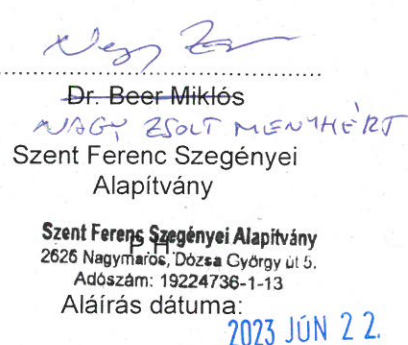 Nagy Zs
Dr. Beer Miklós
NAGY ZSOLT MENYHÉRT
Szent Ferenc Szegényei
Alapítvány
Szent Ferenc Szegényei Alapítvány
P.H.
2626 Nagymaros, Dózsa György út 5.
Adószám: 19224736-1-13
Aláírás dátuma:
2023 JÚN 22.